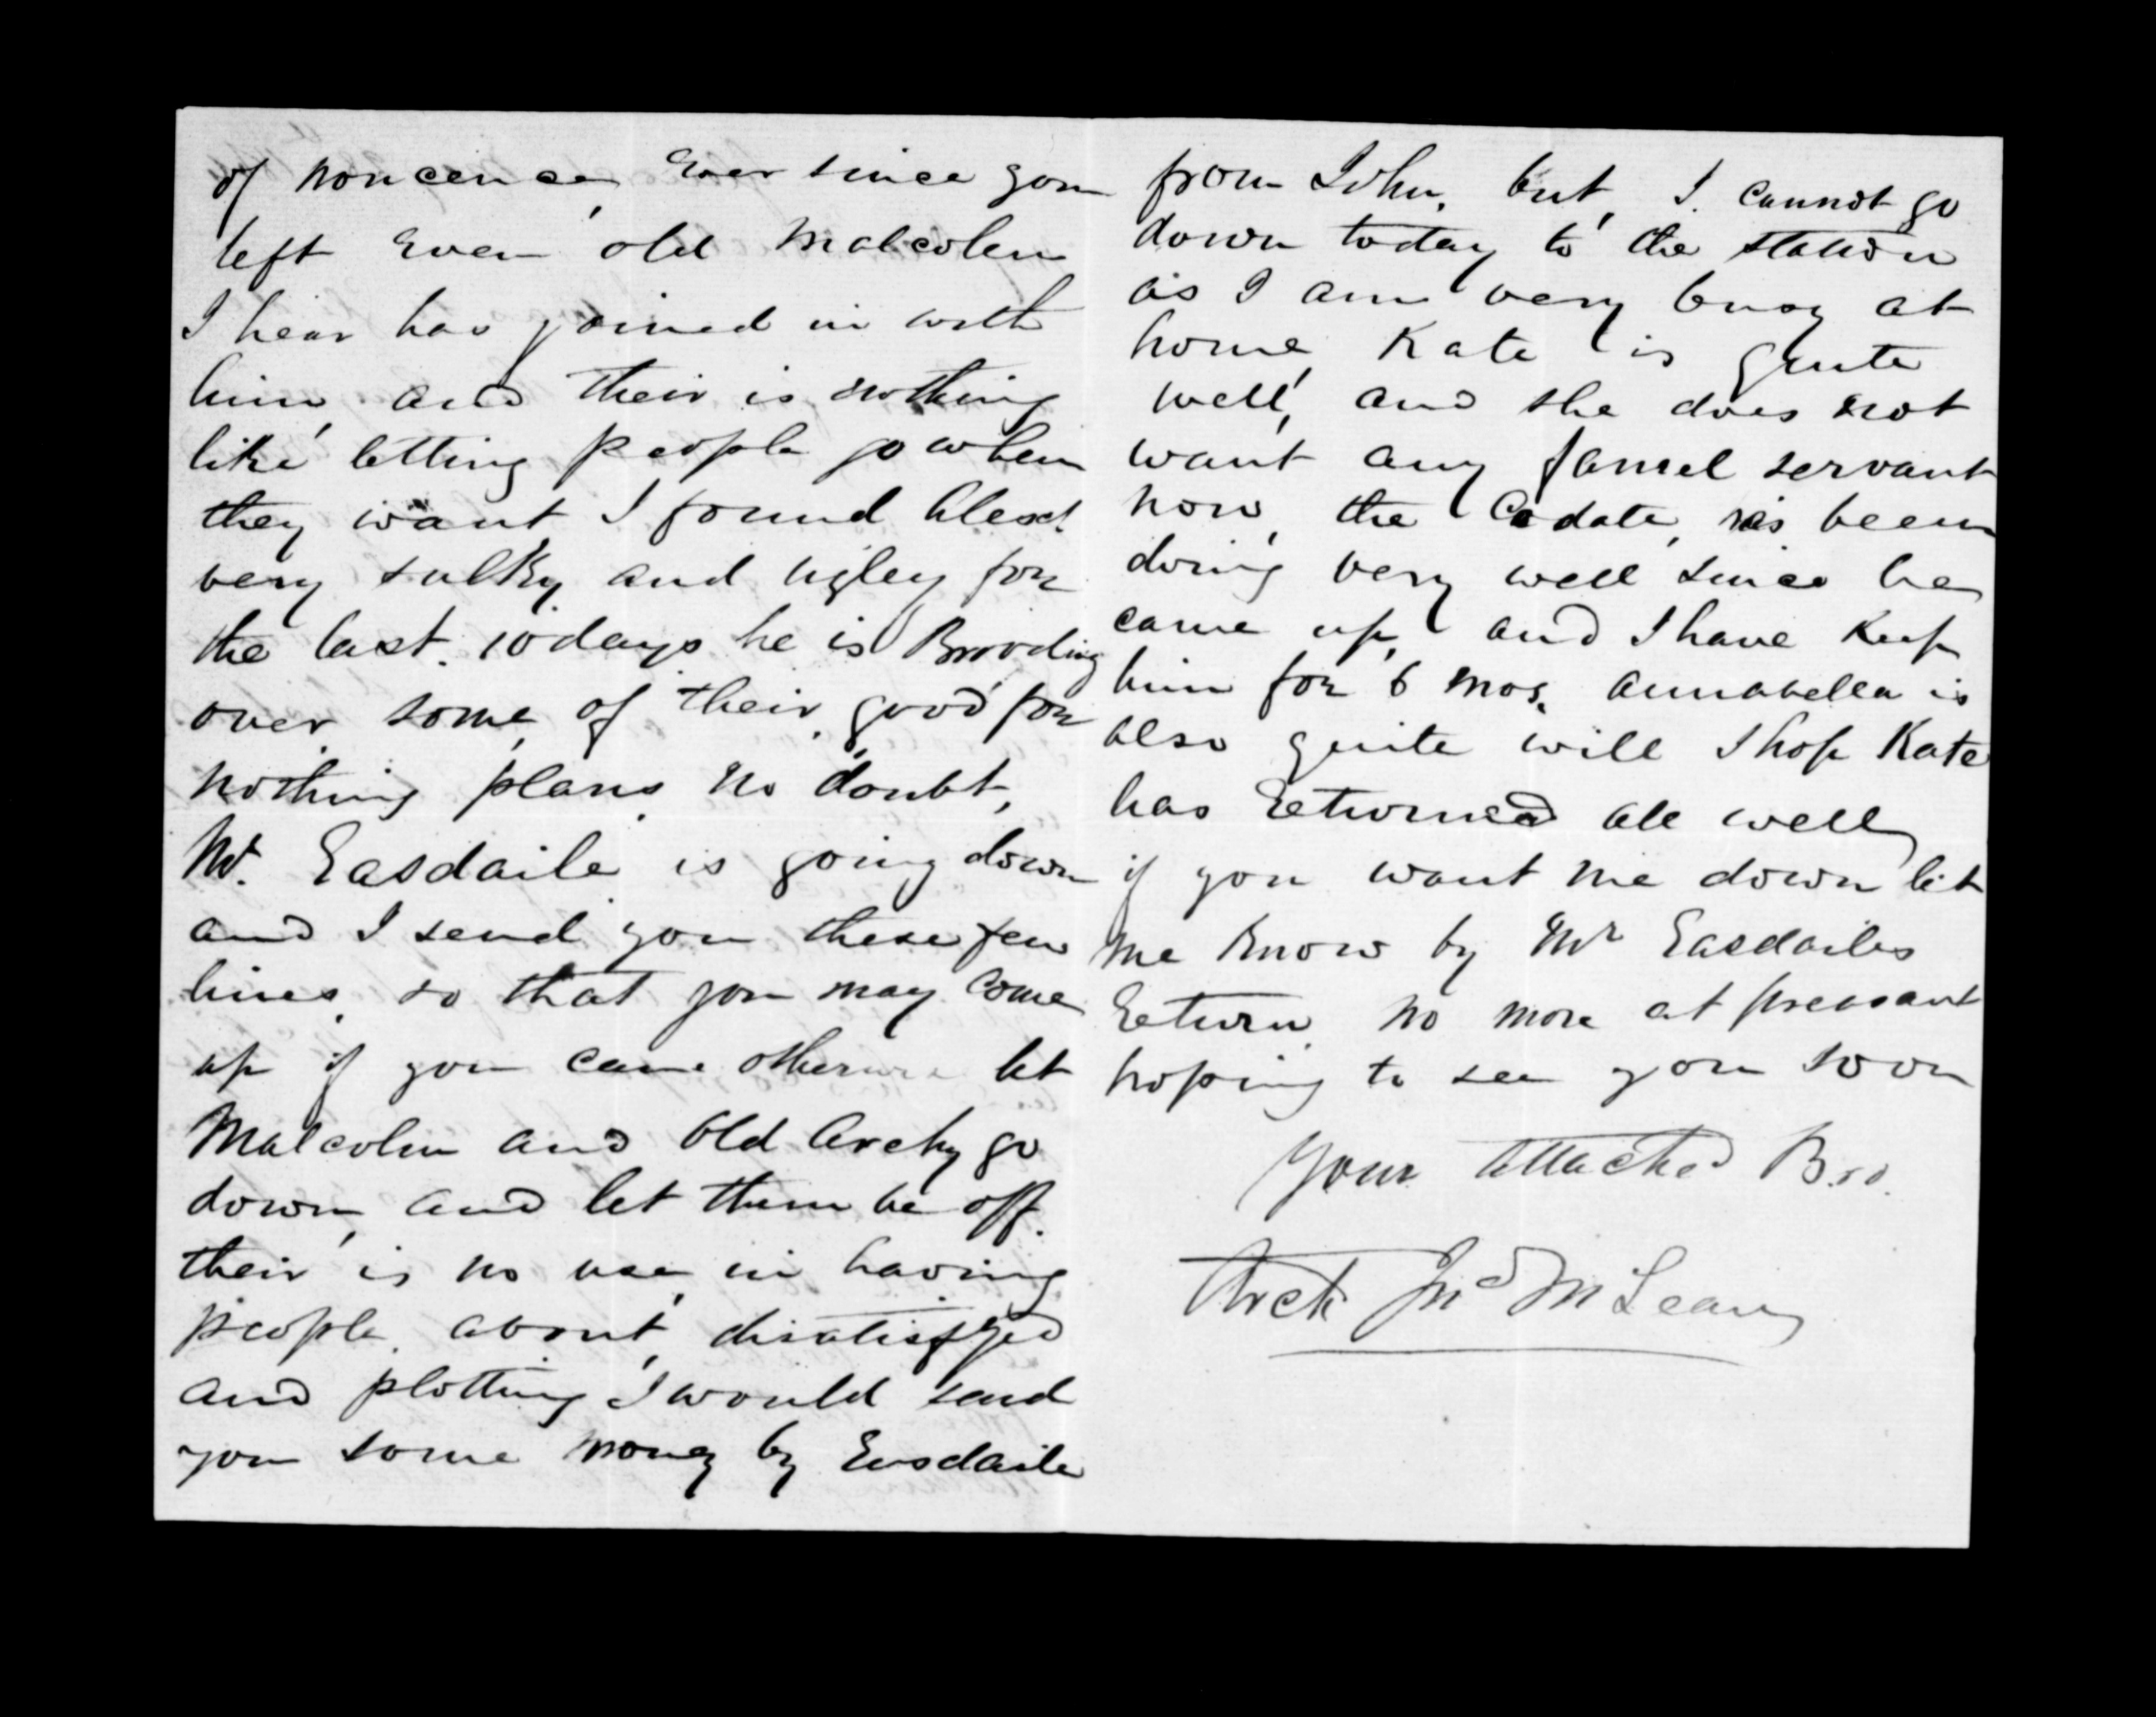 of noncence, Ever since you
left Even old Malcolm
I hear has joined in with
him, and their is nothing
like letting people go when
they want I found Alexd
very sulky and ugley for
the last. 10 days he is Brooding
over some of their good for
nothing plans no doubt,
Mr. Easdaile is going down
and I send you these few
lines, so that you may come
up if you can otherwise let
Malcolm and Old Archy go
down, and let them be off.
their is no use in having
people about, disatisfyed
and plotting I would send
you some money by Eusdaile
from John, but, I cannot go
down today to the station
as I am very busy at
home, Kate is quite
well, and she does not
want any famel servant
now, the Cadate, has been
doing very well since he
came up, and I have Keep
him for 6 mos. Annabella is
also quite will I hop Kate
has Returned all well
if you want me down let
me know by Mr Easdailes
Return. no more at preasant
hoping to see you soon
Your attached Bro.
Arch Jn d McLean